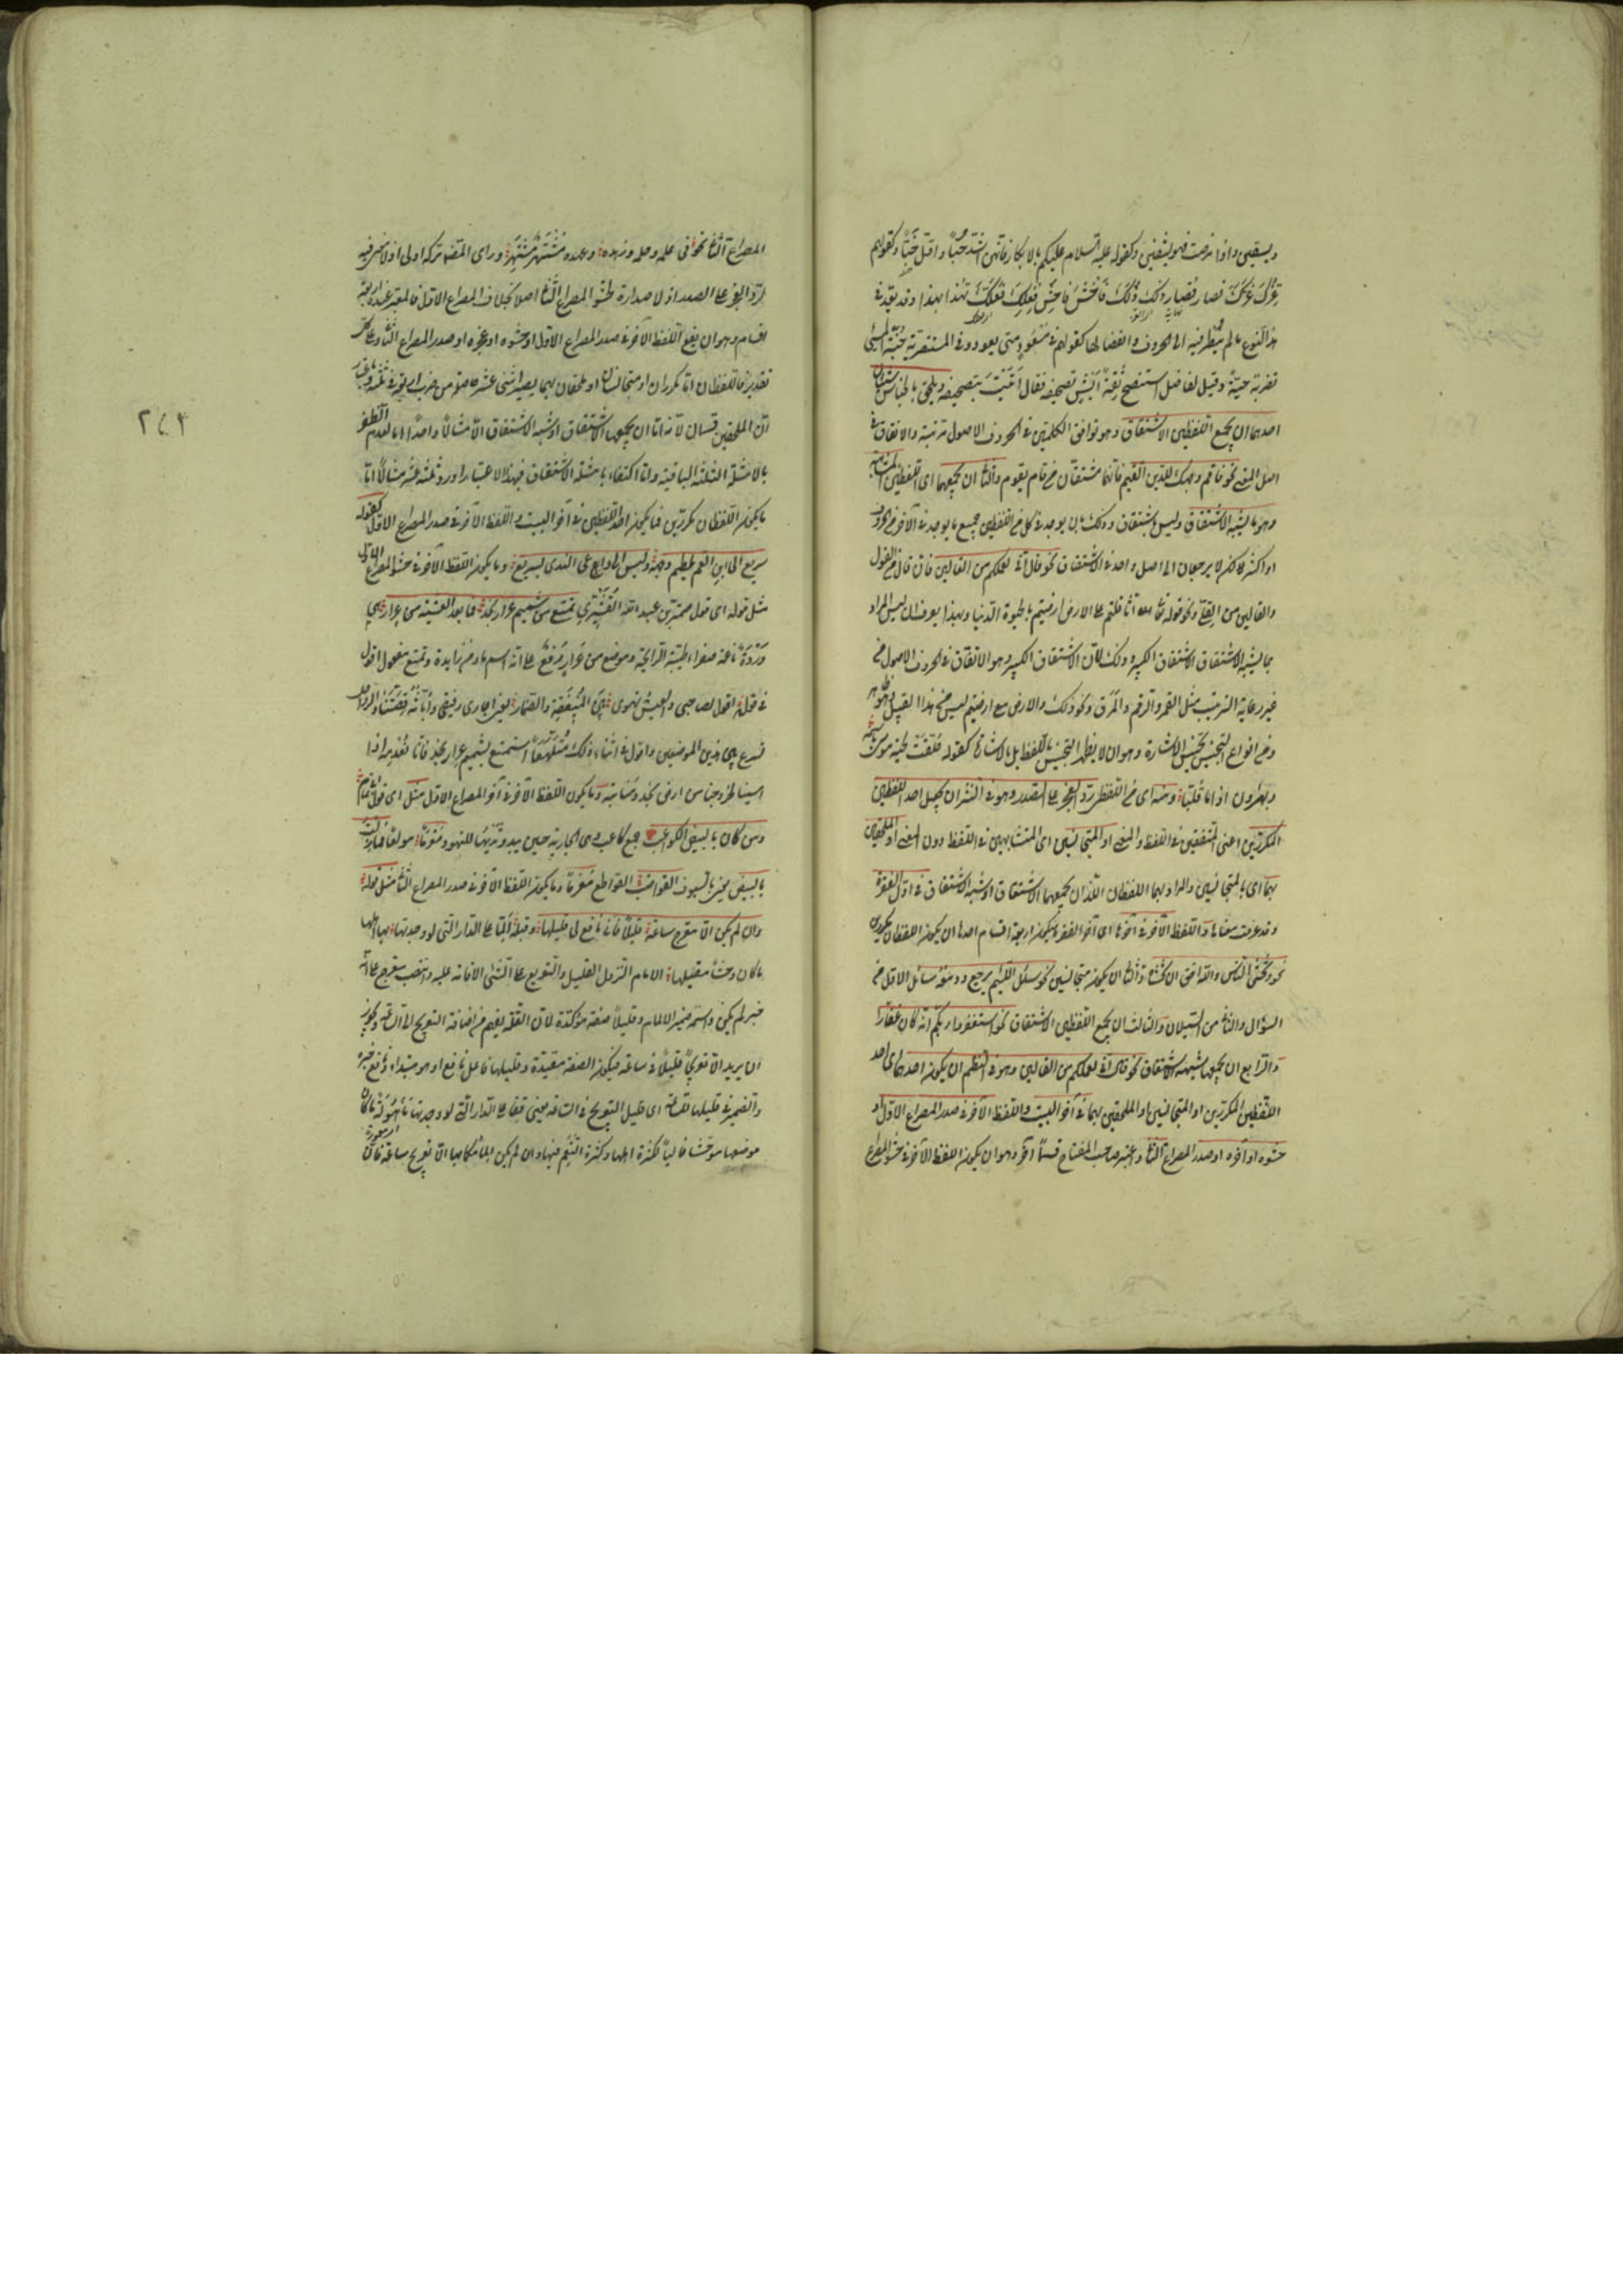 ويسقين واذا مرضت فهو يشفين وكقوله عليه السلام عليكم بالابكار فانهن اشد حبا واقل خبا وكقولهم
غرك عزك فصار قصار ذلك ذلك فاخش فاحش فعلك فعلك تهدا بهذا وقد يعد في
هذا النوع مالم ينظر فيه الى الحروف وانفصالها كقولهم في مسعود متى يعود وفي المستنصرية جنة
تضربه حية وقيل لفاضل استنصح ثقة ايش تصحيفه فقال اتيت بتصحيفه ويلحق بالجناس شيئان
احدهما ان يجمع اللفظين الاشتقاق وهو توافق الكلمتين في الحروف الاصول مرتبة والاتفاق في
اصل المعنى نحو فاقم وجهك للدين القيم فانهما مشتقان من قام يقوم والثاني ان يجمعهما اى اللفظين المشابهة
وهو ما يشبه الاشتقاق وليس باشتقاق وذلك بان يوجد في كل من اللفظين جميع ما يوجد في الآخر من الحروف
او اكثر لكن لا يرجعان الى اصل واحد في الاشتقاق نحو قال اني لعملكم من القالين فان قال من القول
والقالين من القلى ونحو قوله تعالى اثاقلتم الى الارض ارضيتم بالحيوة الدنيا وبهذا يعرف ان ليس المراد
بما يشبه الاشتقاق الاشتقاق الكبير وذلك لان الاشتقاق الكبير هو الاتفاق في الحروف الاصول من
غير رعاية الترتيب مثل القمر والرقم والمرق ونحو ذلك والارض مع ارضيتم ليس من هذا القبيل وهو ظاهر
ومن انواع التجنيس تجنيس الاشارة وهو ان لا يظهر التجنيس باللفظ بل بالاشارة كقوله حلقت لحية موسى باسمه
وبهارون اذا ما قلبا ومنه اى من اللفظي رد العجز على الصدر وهو في النثر ان يجعل احد اللفظين
المكررين اعنى المتفقين في اللفظ والمعنى او المتجانسين اى المتشابهين في اللفظ دون المعنى او الملحقين
بهما اى بالمتجانسين والمراد بهما اللفظان اللذان يجمعهما الاشتقاق او شبه الاشتقاق في اول الفقرة
وقد عرفت معناها واللفظ الآخر في آخرها اى آخر الفقرة فيكون اربعة اقسام احدها ان يكون اللفظان مكررين
نحو وتخشى الناس والله احق ان تخشاه والثاني ان يكونا متجانسين نحو سائل اللئيم يرجع ودمعه سائل الاول من
السؤال والثاني من السيلان والثالث ان يجمع اللفظين الاشتقاق نحو استغفروا ربكم انه كان غفارا
والرابع ان يجمعهما شبه الاشتقاق نحو قال اني لعملكم من القالين وهو في النظم ان يكون احدهما اى احد
اللفظين المكررين او المتجانسين او الملحقين بهما في آخر البيت واللفظ الآخر في صدر المصراع الاول او
حشوه او آخره او صدر المصراع الثاني واعتبر صاحب المفتاح قسما آخر وهو ان يكون اللفظ الآخر في حشو المصراع
المصراع الثاني نحو في علمه وحلمه وزهده وعهده مشتهر مشتهر وراى المصنف تركه اولى اذ لا معنى فيه
لرد العجز على الصدر اذ لا صدارة لحشو المصراع الثاني اصلا بخلاف المصراع الاول فالمعتبر عنده اربعة
اقسام وهو ان يقع اللفظ الآخر في صدر المصراع الاول او حشوه او عجزه او صدر المصراع الثاني وعلى كل
تقدير فاللفظان اما مكرران او متجانسان او ملحقان بهما يصير اثنى عشر حاصلة من ضرب اربعة في ثلثة وباعتبار
ان الملحقين قسمان لانه اما ان يجمعهما الاشتقاق او شبه الاشتقاق الا مثالا واحدا اما لعدم الظفر
بالامثلة الثلثة الباقية واما اكتفاء بامثلة الاشتقاق فبهذا الاعتبار اورد ثلثة عشر مثالا اما
ما يكون اللفظان مكررين فما يكون احد اللفظين في آخر البيت واللفظ الآخر في صدر المصراع الاول كقوله
سريع الى ابن العم يلطم وجهه وليس الى داعى الندى بسريع وما يكون اللفظ الآخر في حشو المصراع الاول
مثل قوله اى قول صمة بن عبد الله القشيرى تمتع من شميم عرار نجد فما بعد العشية من عرار هي
وردة ناعمة صفراء طيبة الرائحة وموضع من عرار رفع على انه اسم ما ومن زايدة وتمتع مفعول اقول
في قوله اقول لصاحبى والعيس تهوى بين المنيفة والضمار يعنى اجارى رفيقى
اسينا لخروجنا من ارض نجد ومنابته وما يكون اللفظ الآخر في آخر المصراع الاول مثل اى قول ابى تمام
ومن كان بالبيض الكواعب جمع كاعب وهى الجارية حين يبدو ثديها للنهود مغرما مولعا فما زلت
بالبيض يعنى بالسيوف القواضب القواطع مغرما وما يكون اللفظ الآخر في صدر المصراع الثاني مثل قوله
وان لم يكن الا معرج ساعة قليلا فانى نافع لى قليلها وقبله الما على الدار التى لو وجدتها بها اهلها
ما كان وحشا مقيلها الالمام النزول القليل والتعريج على الشئ الاقامة عليه وانتصب معرج على انه
خبر لم يكن واسمه ضمير الالمام وقليلا صفة مؤكدة لان القلة يفهم من اضافة التعريج الى الساعة ويجوز
ان يريد الا تعريجا قليلا في ساعة فيكون الصفة مقيدة وقليلها فاعل نافع او هو مبتداء ونافع خبره
والضمير في قليلها للساعة اى قليل التعريج في الساعة يعنى قفا على الدار التى لو وجدتها مأهولة ما كان
موضعها موحشا خاليا لكثرة اهلها وكثرة النعيم فيها وان لم يكن المامكما بها الا تعريج ساعة فان